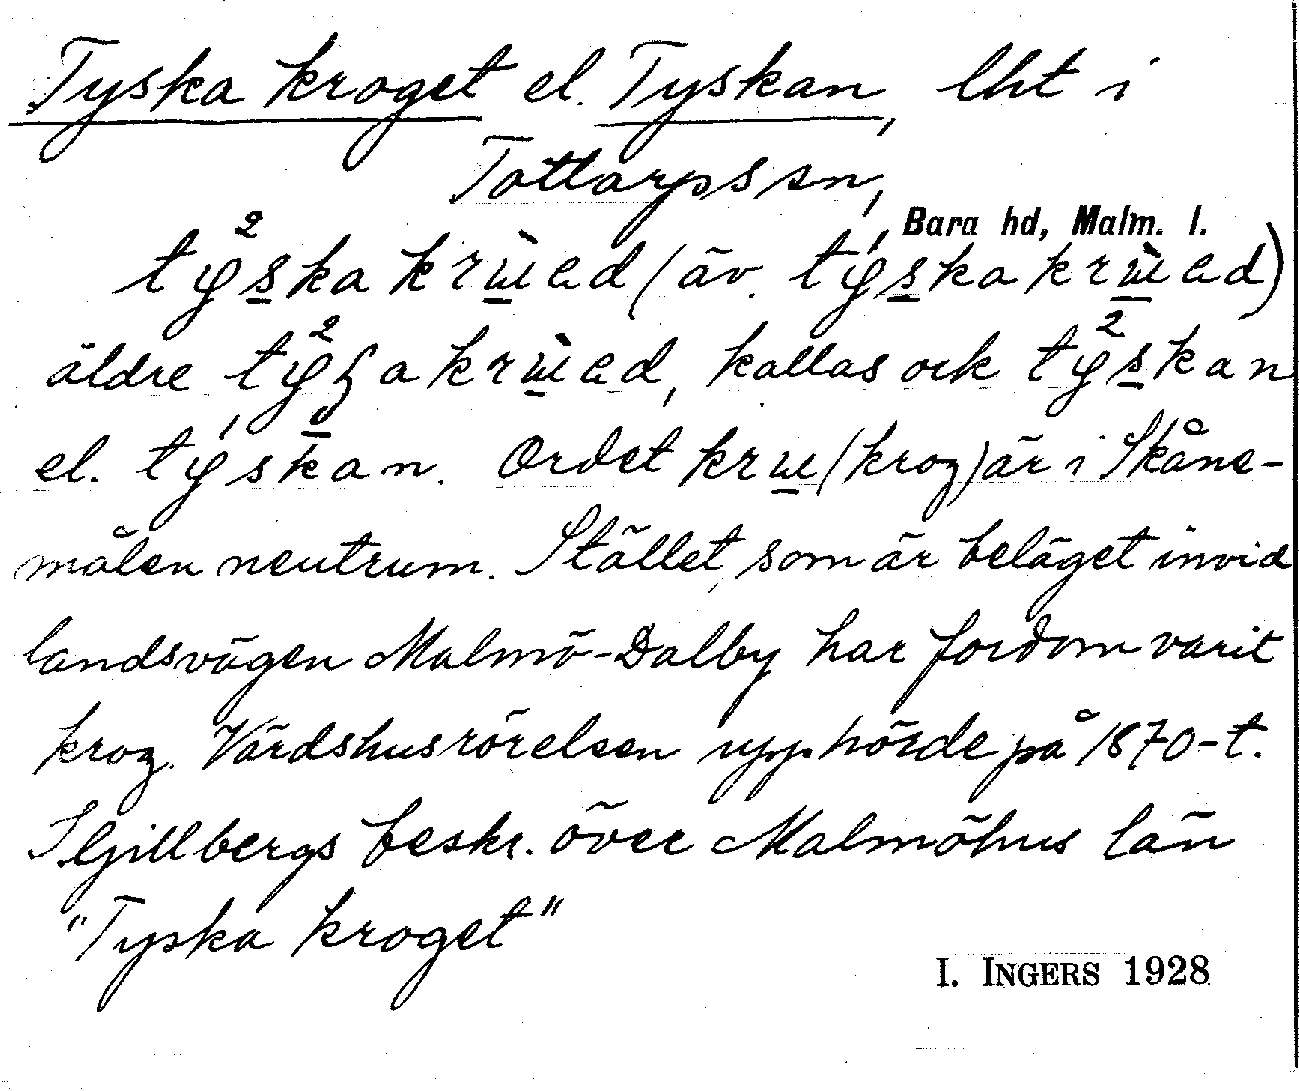 Tyska kroget el. Tyskan, lht i
Tottarps sn,
Bara hd, Malm. l.
tyska krɯad (äv. týska krɯad)
äldre tyʃa krɯad, kallas ock tyskan
el. týskan. Ordet krɯ (krog) är i Skåne-
målen neutrum. Stället, som är beläget invid
landsvägen Malmö-Dalby har fordom varit
krog. Värdshusrörelsen upphörde på 1870-t.
I Gillbergs beskr. över Malmöhus län
"Tyska kroget"
I. INGERS 1928